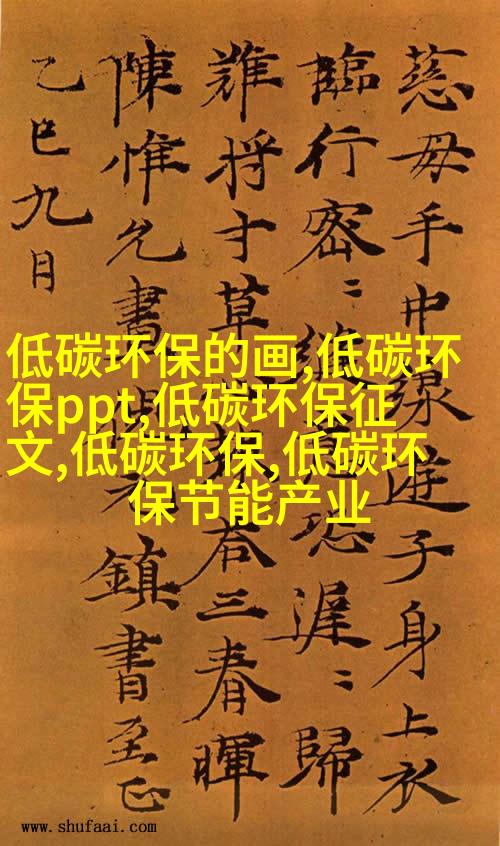 慈母手中線遊子身上衣
臨行密〻縫意恐遲〻歸
難将寸草報答三春暉
陳惟允書鎮書至正
乙巳九月
低碳环保的画,低碳环
保ppt,低碳环保征
文,低碳环保,低碳环
保节能产业
www.shufaai.com